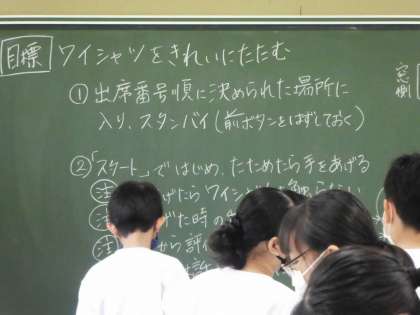 目標 ワイシャツをきれいにたたむ
①出席番号順に決められた場所に
入り、スタンバイ(前ボタンをはずしておく)
②「スタート」ではじめ、たためたら手をあげる
注 げたらワイシャツ 触らない
注 げた時の
注 から評価
窓側